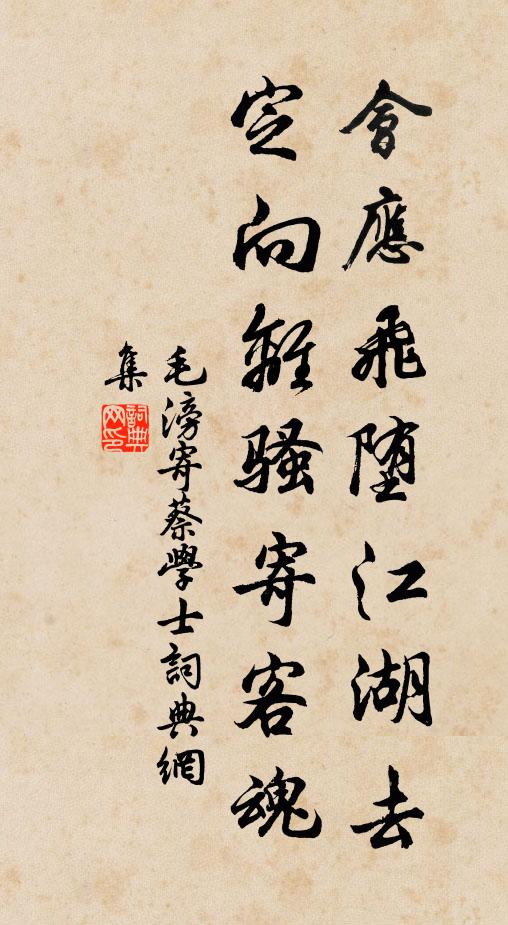 會應飛墮江湖去
定向離騷寄客魂
毛滂寄蔡學士詞典網
集
詞典
网印